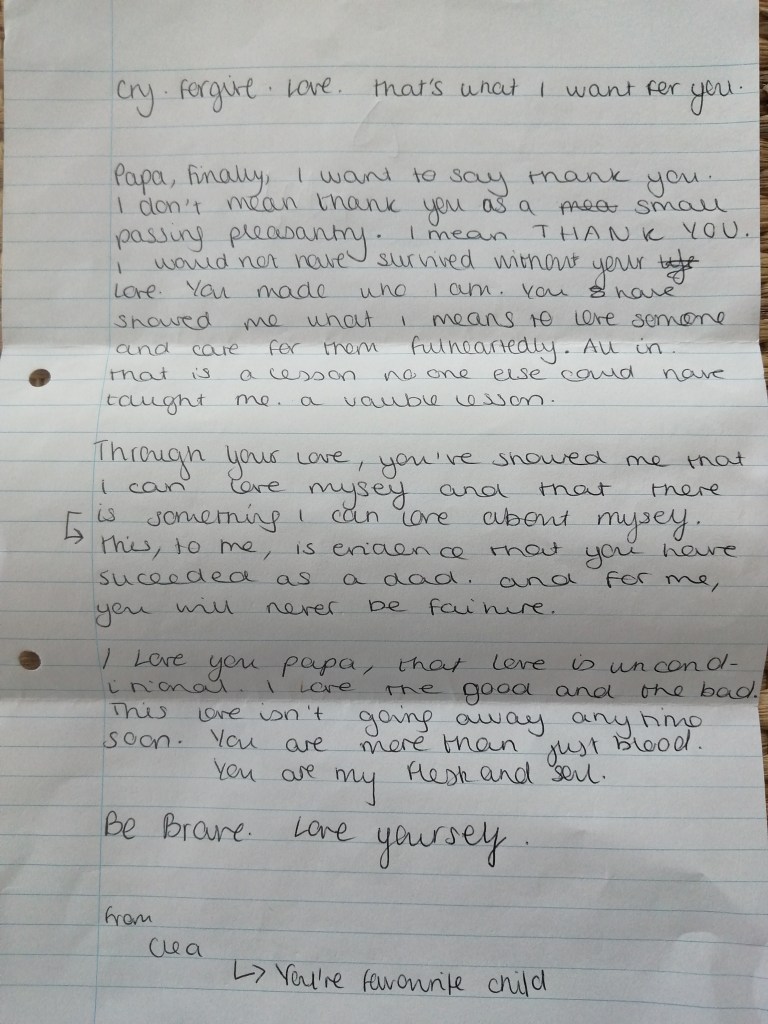 Cry. Forgive. Love. that's what I want for you.
Papa, Finally, I want to say thank you.
I don't mean thank you as a small
passing pleasantry. I mean THANK YOU.
I would not have survived without your
Love. You made who I am. You have
showed me what I means to love somone
and care for them fulheartedly. All in.
that is a lesson no one else could have
taught me. a vauble lesson.
Through your Love, you've showed me that
I can love myself and that there
is something I can love about myself.
↳ this, to me, is evidence that you have
suceeded as a dad. and for me,
you will never be failure.
I Love you papa, that love is uncond-
itional. I love the good and the bad.
This love isn't going away anytime
soon. You are more than just blood.
You are my flesh and soul.
Be Brave. Love yourself.
from
Clea
↳ You're favourite child